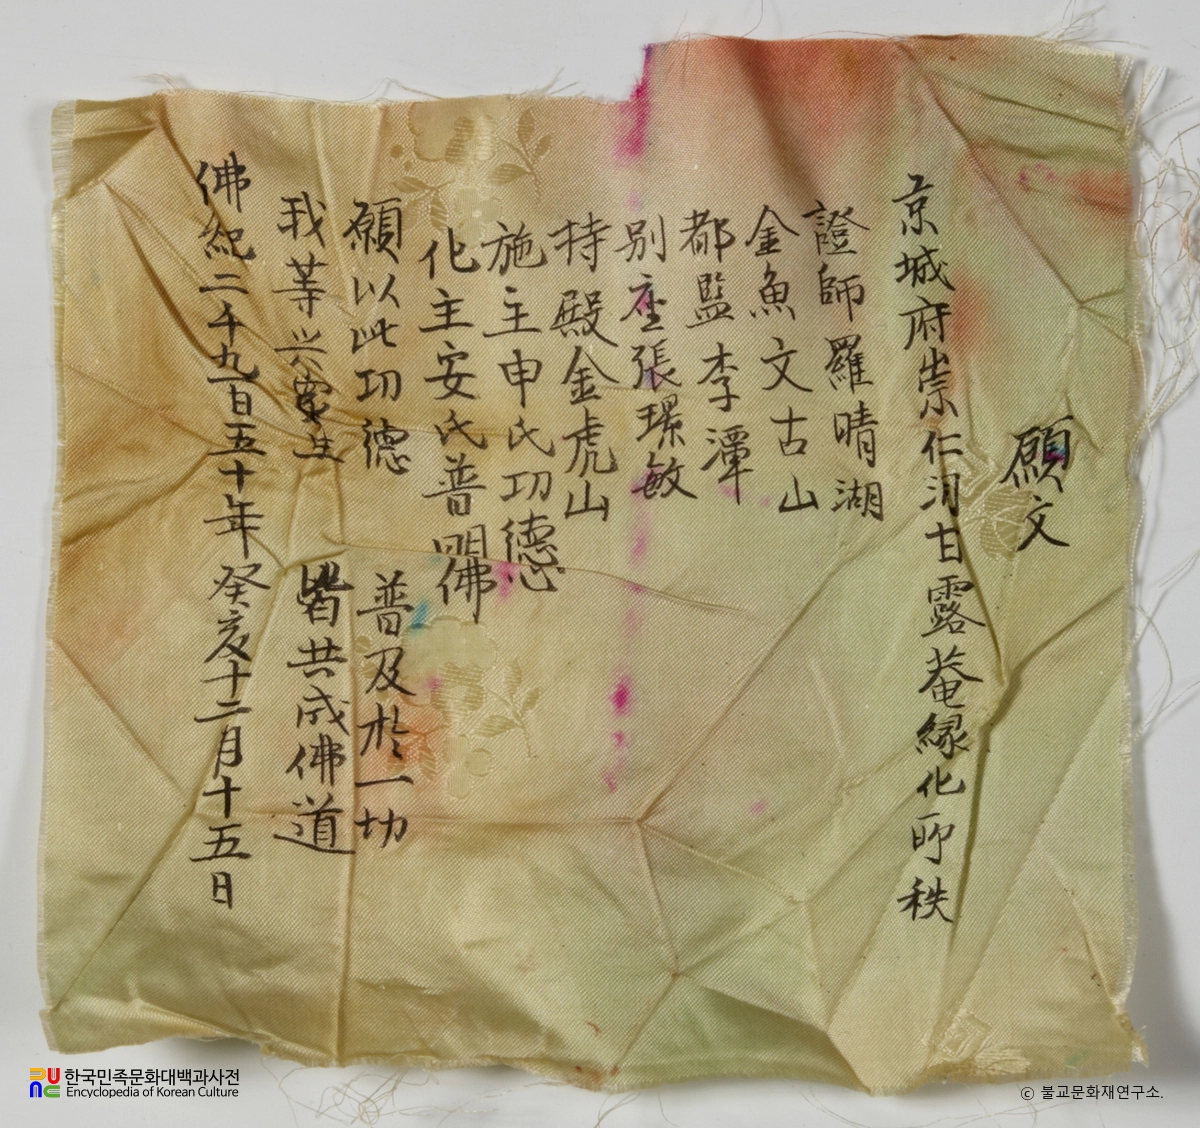 願文
京城府崇仁洞甘露菴緣化所秩
證師羅晴湖
金魚文古山
都監李潭
別座張璟敏
持殿金虎山
施主申氏功德心
化主安氏普明佛
願以此功德 普及於一切
我等與衆生 皆共成佛道
佛紀二千九百五十年癸亥十二月十五日
한국민족문화대백과사전
Encyclopedia of Korean Culture
© 불교문화재연구소.